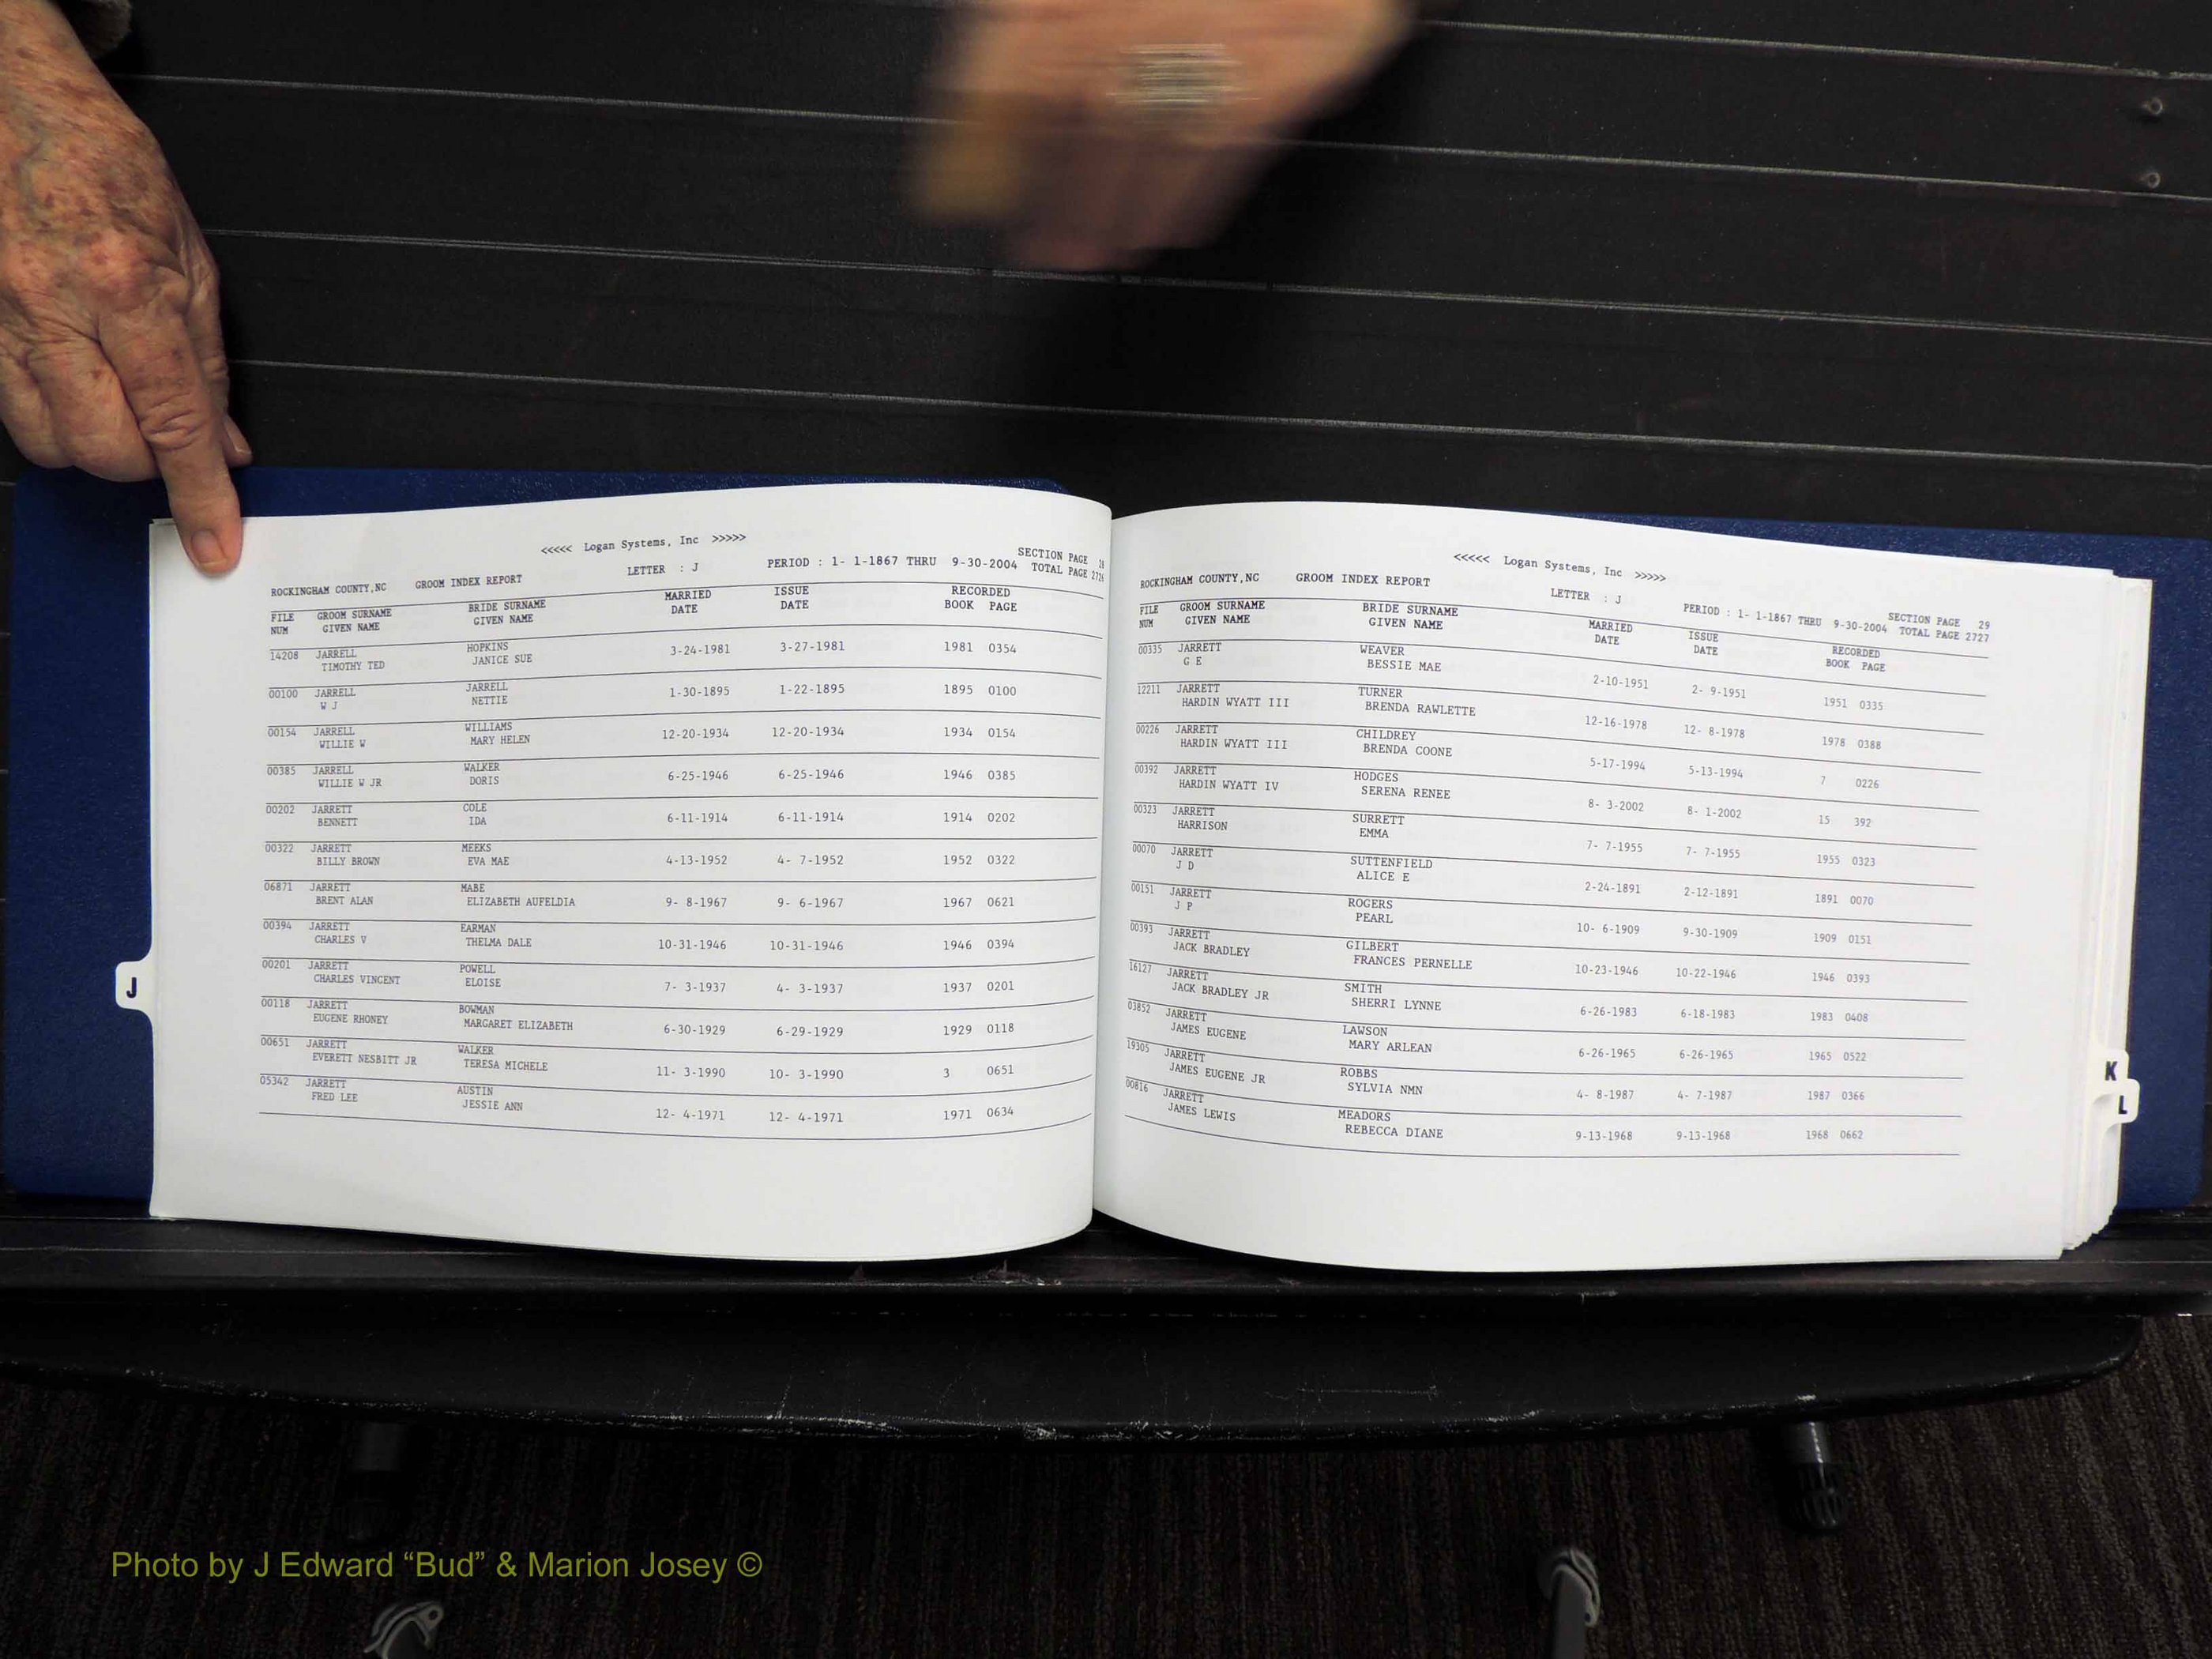 <<<<< Logan Systems, Inc >>>>>
ROCKINGHAM COUNTY,NC GROOM INDEX REPORT LETTER : J PERIOD : 1- 1-1867 THRU 9-30-2004 SECTION PAGE 28
TOTAL PAGE 2726
FILE GROOM SURNAME BRIDE SURNAME MARRIED ISSUE RECORDED
NUM GIVEN NAME GIVEN NAME DATE DATE BOOK PAGE
14208 JARRELL HOPKINS 3-24-1981 3-27-1981 1981 0354
TIMOTHY TED JANICE SUE
00100 JARRELL JARRELL 1-30-1895 1-22-1895 1895 0100
W J NETTIE
00154 JARRELL WILLIAMS 12-20-1934 12-20-1934 1934 0154
WILLIE W MARY HELEN
00385 JARRELL WALKER 6-25-1946 6-25-1946 1946 0385
WILLIE W JR DORIS
00202 JARRETT COLE 6-11-1914 6-11-1914 1914 0202
BENNETT IDA
00322 JARRETT MEEKS 4-13-1952 4- 7-1952 1952 0322
BILLY BROWN EVA MAE
06871 JARRETT MABE 9- 8-1967 9- 6-1967 1967 0621
BRENT ALAN ELIZABETH AUFELDIA
00394 JARRETT EARMAN 10-31-1946 10-31-1946 1946 0394
CHARLES V THELMA DALE
00201 JARRETT POWELL 7- 3-1937 4- 3-1937 1937 0201
CHARLES VINCENT ELOISE
00118 JARRETT BOWMAN 6-30-1929 6-29-1929 1929 0118
EUGENE RHONEY MARGARET ELIZABETH
00651 JARRETT WALKER 11- 3-1990 10- 3-1990 3 0651
EVERETT NESBITT JR TERESA MICHELE
05342 JARRETT AUSTIN 12- 4-1971 12- 4-1971 1971 0634
FRED LEE JESSIE ANN
J
<<<<< Logan Systems, Inc >>>>>
ROCKINGHAM COUNTY,NC GROOM INDEX REPORT LETTER : J PERIOD : 1- 1-1867 THRU 9-30-2004 SECTION PAGE 29
TOTAL PAGE 2727
FILE GROOM SURNAME BRIDE SURNAME MARRIED ISSUE RECORDED
NUM GIVEN NAME GIVEN NAME DATE DATE BOOK PAGE
00335 JARRETT WEAVER 2-10-1951 2- 9-1951 1951 0335
G E BESSIE MAE
12211 JARRETT TURNER 12-16-1978 12- 8-1978 1978 0388
HARDIN WYATT III BRENDA RAWLETTE
00226 JARRETT CHILDREY 5-17-1994 5-13-1994 7 0226
HARDIN WYATT III BRENDA COONE
00392 JARRETT HODGES 8- 3-2002 8- 1-2002 15 392
HARDIN WYATT IV SERENA RENEE
00323 JARRETT SURRETT 7- 7-1955 7- 7-1955 1955 0323
HARRISON EMMA
00070 JARRETT SUTTENFIELD 2-24-1891 2-12-1891 1891 0070
J D ALICE E
00151 JARRETT ROGERS 10- 6-1909 9-30-1909 1909 0151
J P PEARL
00393 JARRETT GILBERT 10-23-1946 10-22-1946 1946 0393
JACK BRADLEY FRANCES PERNELLE
16127 JARRETT SMITH 6-26-1983 6-18-1983 1983 0408
JACK BRADLEY JR SHERRI LYNNE
03852 JARRETT LAWSON 6-26-1965 6-26-1965 1965 0522
JAMES EUGENE MARY ARLEAN
19305 JARRETT ROBBS 4- 8-1987 4- 7-1987 1987 0366
JAMES EUGENE JR SYLVIA NMN
00816 JARRETT MEADORS 9-13-1968 9-13-1968 1968 0662
JAMES LEWIS REBECCA DIANE
K
L
Photo by J Edward “Bud” & Marion Josey ©